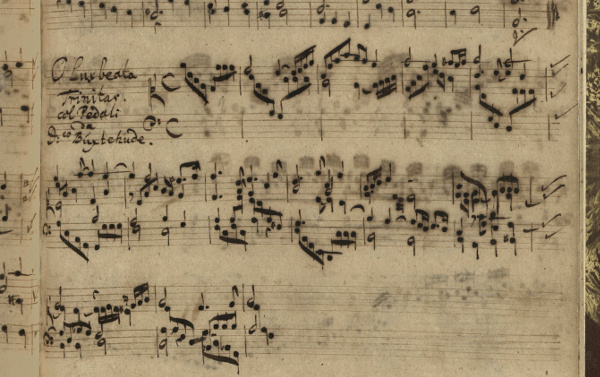 O Lux beata
Trinitas.
col Pedali
da
Buxtehude.